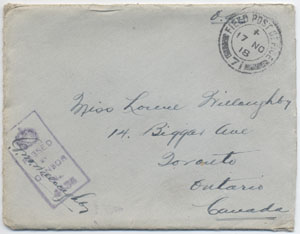 FIELD POST OFFICE
17 NO
18
Miss Lorene Willoughby
14. Biggar Ave
Toronto
Ontario
Canada
PASSED
CENSOR